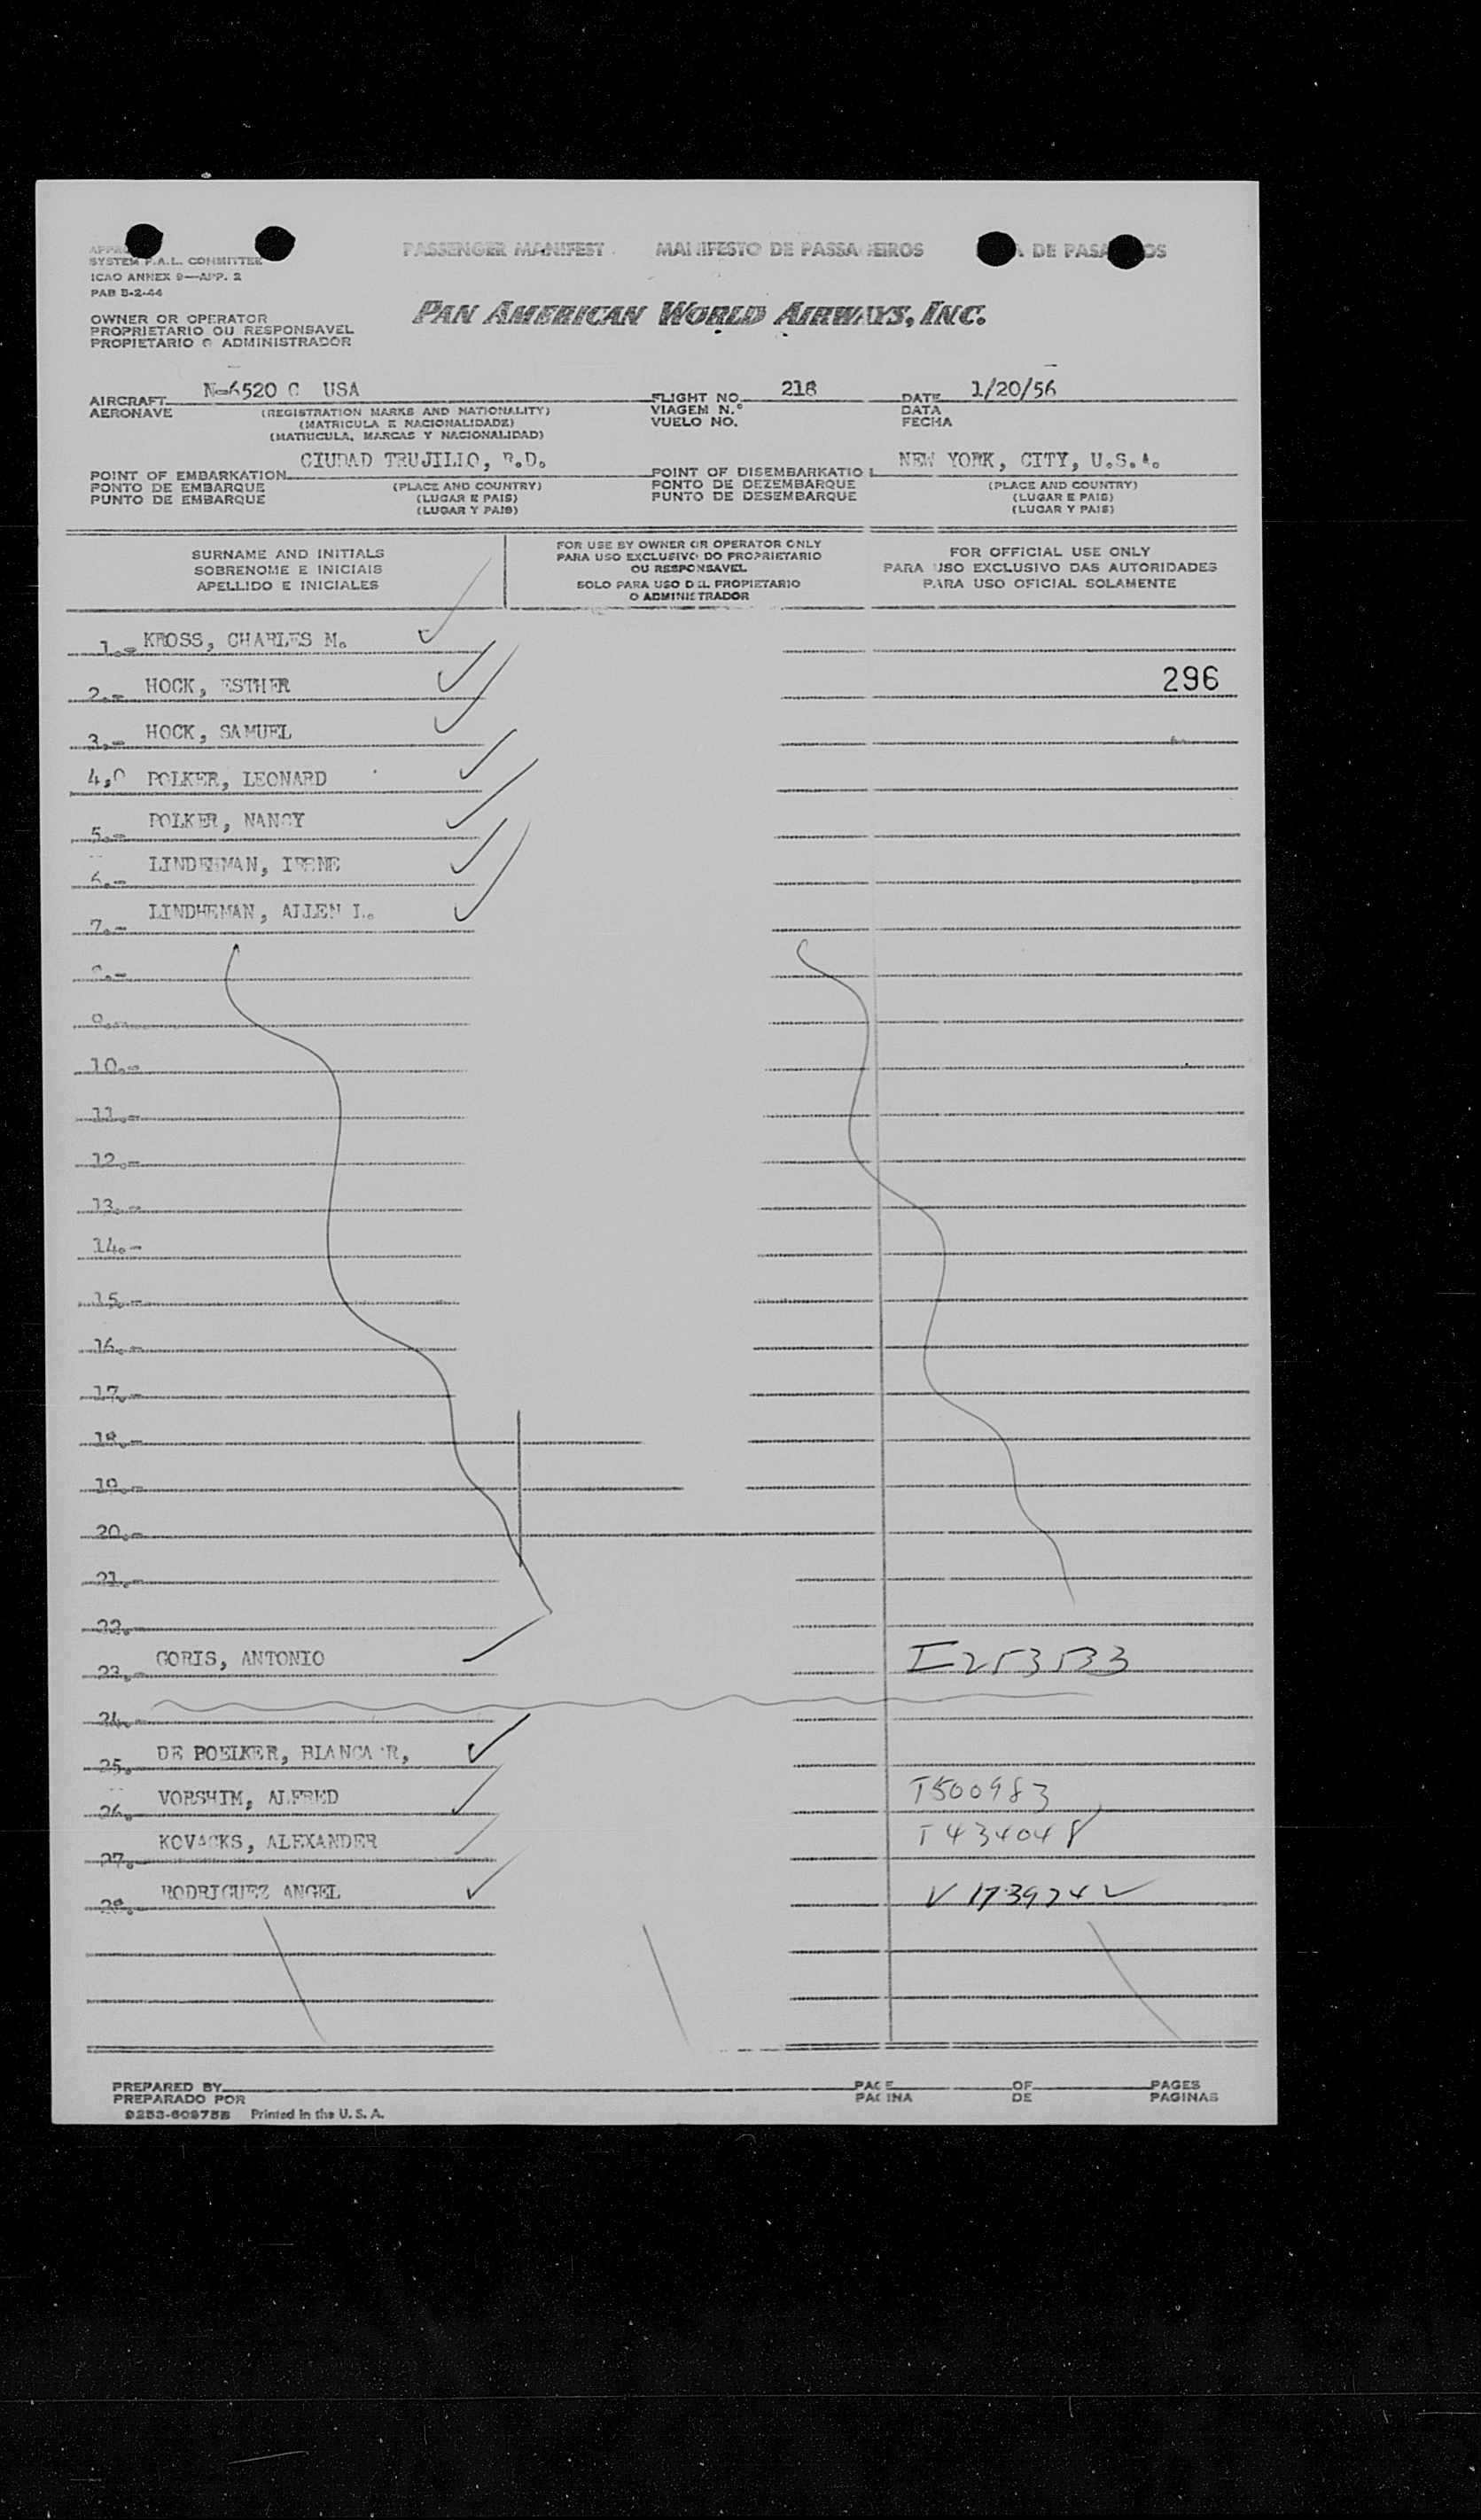 PASSENGER MANIFEST MANIFESTO DE PASSAGEIROS DE PASAJEROS
SYSTEM F.A.L. COMMITTEE
ICAO ANNEX 9—APP. 2
PAB 5-2-44
OWNER OR OPERATOR
PROPRIETARIO OU RESPONSAVEL
PROPIETARIO O ADMINISTRADOR
PAN AMERICAN WORLD AIRWAYS, INC.
AIRCRAFT N-6520 C USA FLIGHT NO. 218 DATE 1/20/56
AERONAVE (REGISTRATION MARKS AND NATIONALITY) VIAGEM N.º DATA
(MATRICULA E NACIONALIDADE) VUELO NO. FECHA
(MATRICULA, MARCAS Y NACIONALIDAD)
POINT OF EMBARKATION CIUDAD TRUJILLO, R.D. POINT OF DISEMBARKATION NEW YORK, CITY, U.S.A.
PONTO DE EMBARQUE (PLACE AND COUNTRY) PONTO DE DEZEMBARQUE (PLACE AND COUNTRY)
PUNTO DE EMBARQUE (LUGAR E PAIS) PUNTO DE DESEMBARQUE (LUGAR E PAIS)
(LUGAR Y PAIS) (LUGAR Y PAIS)
SURNAME AND INITIALS
SOBRENOME E INICIAIS
APELLIDO E INICIALES
FOR USE BY OWNER OR OPERATOR ONLY
PARA USO EXCLUSIVO DO PROPRIETARIO
OU RESPONSAVEL
SOLO PARA USO DEL PROPIETARIO
O ADMINISTRADOR
FOR OFFICIAL USE ONLY
PARA USO EXCLUSIVO DAS AUTORIDADES
PARA USO OFICIAL SOLAMENTE
1.- KROSS, CHARLES M.
2.- HOCK, ESTHER 296
3.- HOCK, SAMUEL
4.0 POLKER, LEONARD
5.- POLKER, NANCY
6.- LINDEHMAN, IRENE
7.- LINDHEMAN, ALLEN L.
8.-
9.-
10.-
11.-
12.-
13.-
14.-
15.-
16.-
17.-
18.-
19.-
20.-
21.-
22.-
23.- GORIS, ANTONIO I253533
24.-
25.- DE POELKER, BLANCA R,
26.- VORSHIM, ALFRED T500983
27.- KOVACKS, ALEXANDER T434048
28.- RODRIGUEZ ANGEL V 1739242
PREPARED BY PAGE OF PAGES
PREPARADO POR PAGINA DE PAGINAS
9253-60975B Printed in the U. S. A.